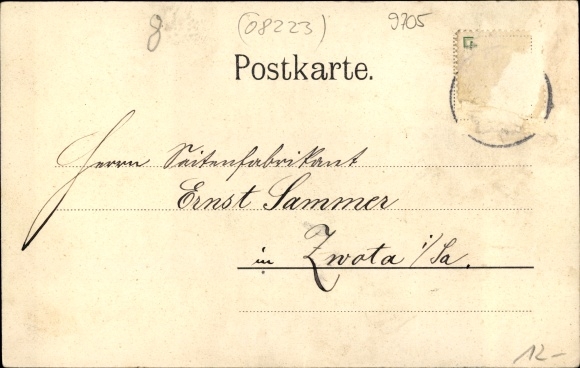 8 (08223) 9705
Postkarte.
Herrn Saitenfabrikant
Ernst Sammer
in Zwota i/Sa.
12-